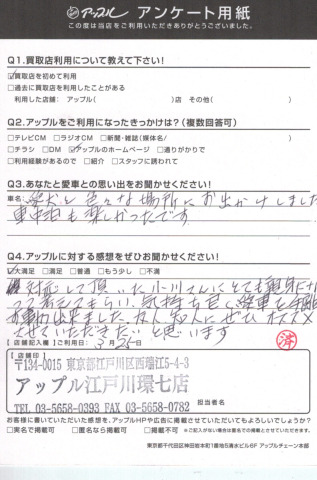 アップル アンケート用紙
この度は当店をご利用いただきありがとうございました。
Q1.買取店利用について教えて下さい!
☑買取店を初めて利用
□過去に買取店を利用したことがある
利用した店舗: アップル( )店 その他( )
Q2.アップルをご利用になったきっかけは?(複数回答可)
□テレビCM □ラジオCM □新聞・雑誌(媒体名/ )
□チラシ □DM ☑アップルのホームページ □通りがかりで
□利用経験があるので □紹介 □スタッフに誘われて
Q3.あなたと愛車との思い出をお聞かせください!
車名: 愛犬と色々な場所にお出かけしました
車中泊も楽しかったです
Q4.アップルに対する感想をぜひお聞かせください!
☑大満足 □満足 □普通 □もう少し □不満
対応して頂いた小川さんにとても親身に
って考えてもらい、気持ち良く愛車を手離
す事が出来ました。友人知人にぜひオススメ
させていただきたいと思います
【店舗記入欄】〈ご利用日: 月25日
済
【店舗印】
〒134-0015 東京都江戸川区西瑞江5-4-3
アップル江戸川環七店
TEL 03-5658-0393 FAX 03-5658-0782
担当者名
お客様に書いていただいた感想を、アップルHPや広告に掲載させていただいてもよろしいでしょうか?
□実名で掲載可 □匿名なら掲載可 □掲載不可 ※ご記入がない場合は匿名での掲載とさせていただきます。
東京都千代田区神田岩本町1番地5清水ビル6F アップルチェーン本部